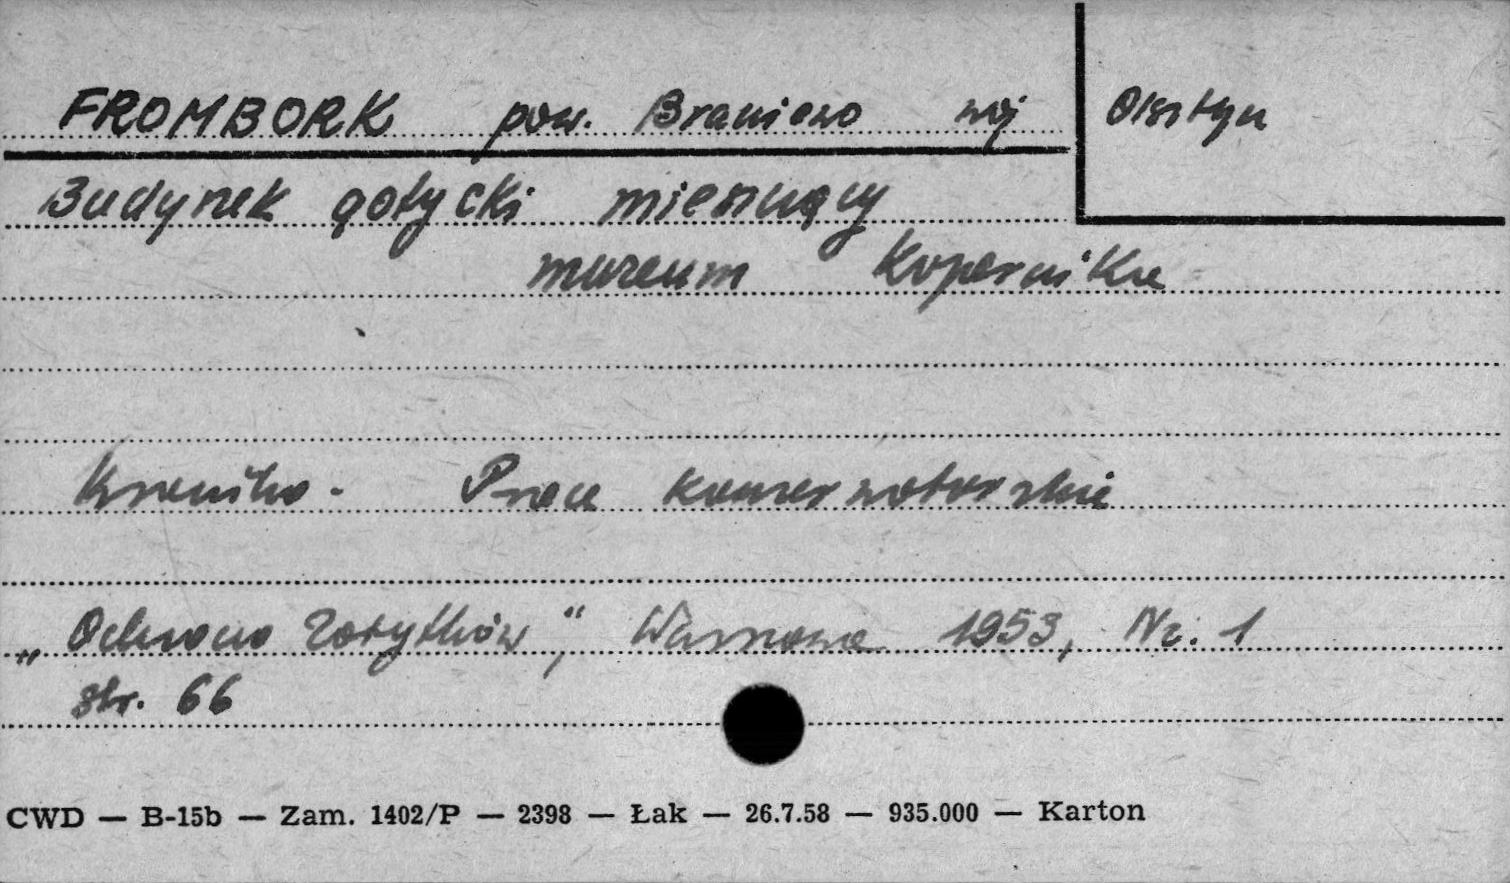 FROMBORK pow. Braniewo woj Olsztyn
Budynek gotycki mieszczący
muzeum Kopernika
Kronika. Prace konserwatorskie
„Ochrona Zabytków", Warszawa 1953, Nr. 1
str. 66
CWD — B-15b — Zam. 1402/P — 2398 — Łak — 26.7.58 — 935.000 — Karton